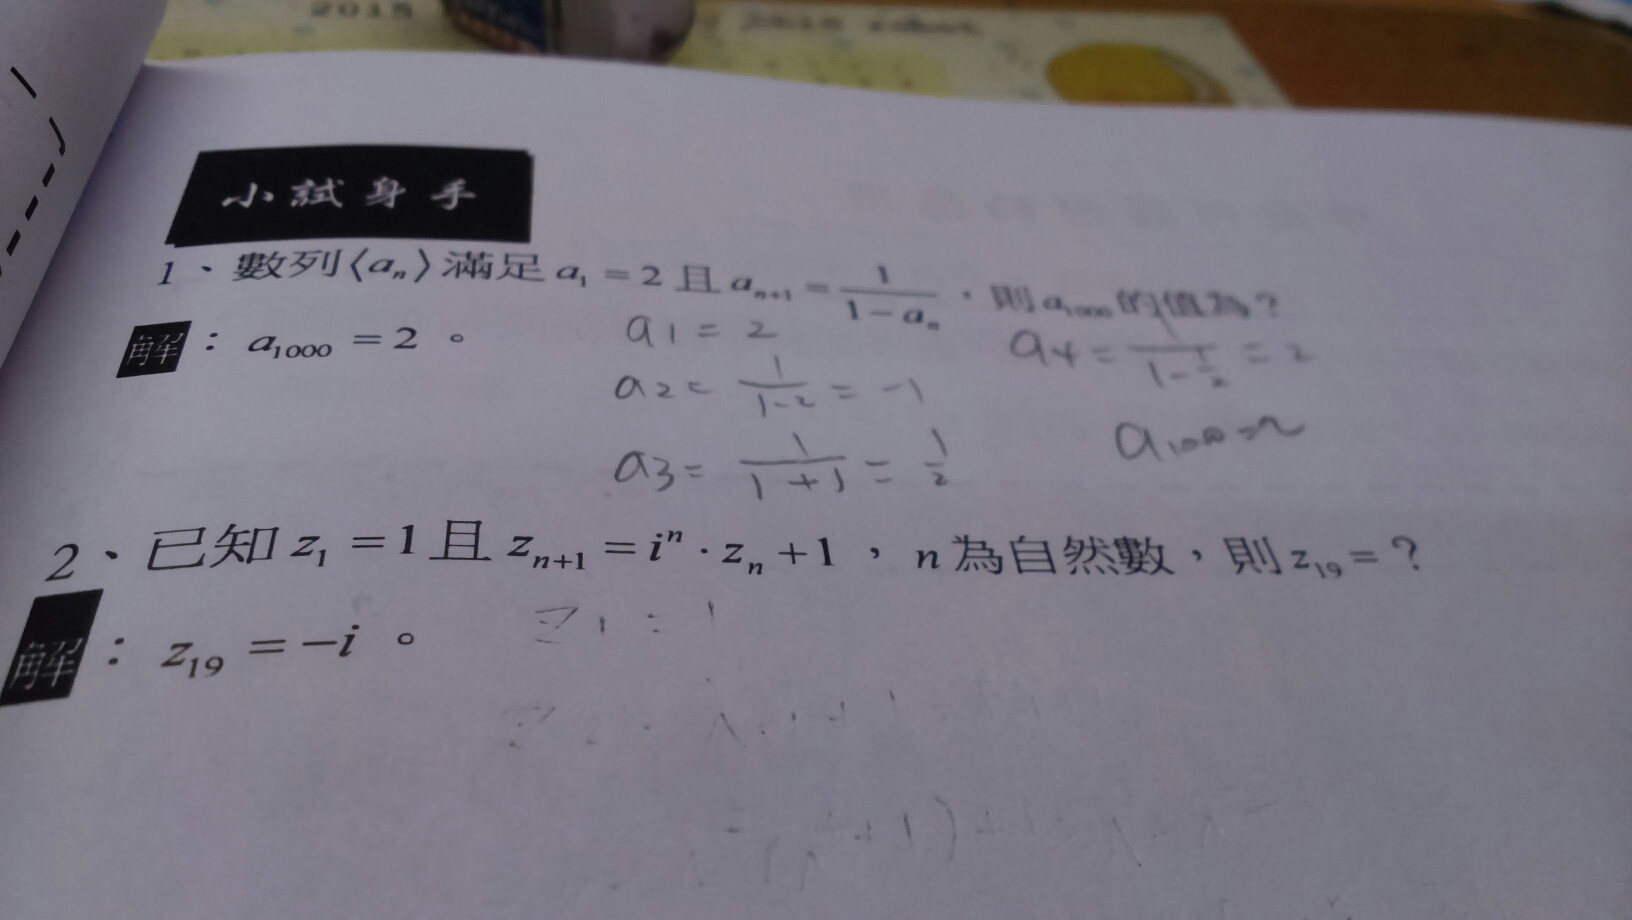 2015
小試身手
1、數列⟨aₙ⟩滿足 a₁ = 2 且 aₙ₊₁ = 1/(1 − aₙ)，則 a₁₀₀₀ 的值為？
解：a₁₀₀₀ = 2。
a1 = 2
a2 = 1/(1-2) = -1
a3 = 1/(1+1) = 1/2
a4 = 1/(1-1/2) = 2
a1000=2
2、已知 z₁ = 1 且 zₙ₊₁ = iⁿ · zₙ + 1，n 為自然數，則 z₁₉ = ？
解：z₁₉ = −i。
Z1 = 1